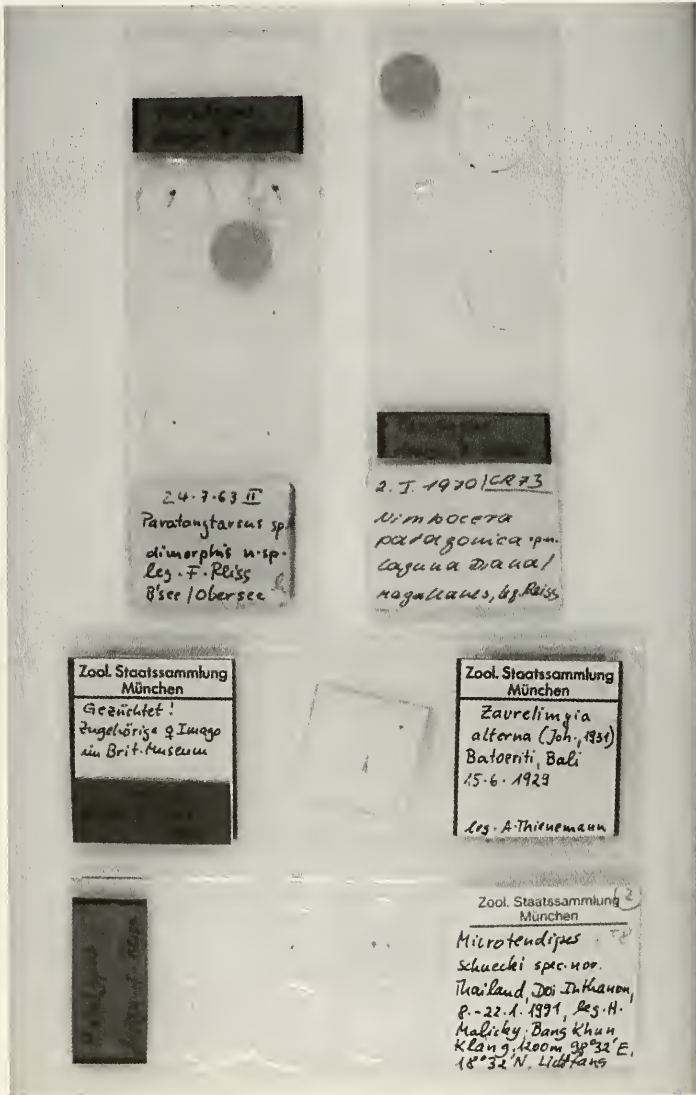 24.7.63 II
Paratanytarsus sp.
dimorphis n.sp.
leg. F. Reiss
B'see / Obersee
2. I. 1970 / CR73
Nimbocera
patagonica
Laguna Diana /
Magallanes, leg. Reiss
Zool. Staatssammlung
München
Gezüchtet!
Zugehörige ♀ Imago
im Brit. Museum
Zool. Staatssammlung
München
Zavrelimyia
alterna (Joh., 1931)
Batoeriti, Bali
15.6.1929
leg. A. Thienemann
Zool. Staatssammlung
München
Microtendipes
schuecki spec. nov.
Thailand, Doi Inthanon,
8.-22.1.1991, leg. H.
Malicky. Bang Khun
Klang, 1200m, 98°32'E,
18°32'N, Lichtfang